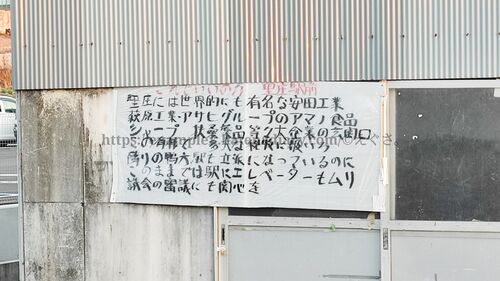 これでいいのか 里庄駅前
里庄には世界的にも有名な安田工業
萩原工業・アサヒグループのアマノ食品
シャープ・扶桑薬品等々大企業の玄関口
隣りの鴨方駅も立派になっているのに
このままでは駅にエレベーターもムリ
議会の審議にも関心を